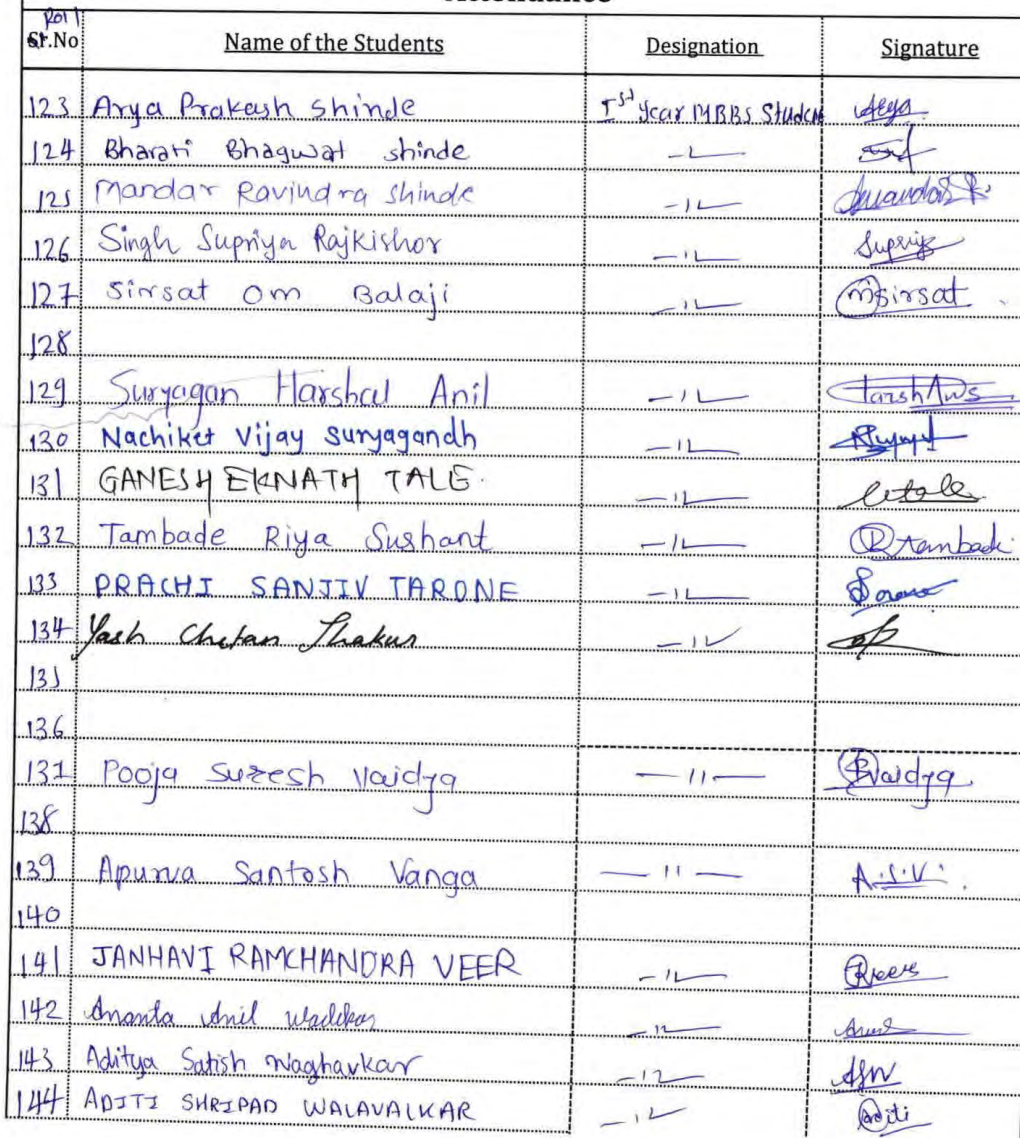 Roll
Sr.No Name of the Students Designation Signature
123 Arya Prakash Shinde Ist Year MBBS Student Arya
124 Bharati Bhagwat Shinde -11-
125 Mandar Ravindra Shinde -11-
126 Singh Supriya Rajkishor -11- Supriya
127 Sirsat Om Balaji -11- Omsirsat
128
129 Suryagan Harshal Anil -11-
130 Nachiket Vijay Suryagandh -11-
131 GANESH EKNATH TALE. -11-
132 Tambade Riya Sushant -11- Rtambade
133 PRACHI SANJIV TARONE -11-
134 Yash Chetan Thakur -11-
135
136
137 Pooja Suresh Vaidya -11- PVaidya
138
139 Apurva Santosh Vanga -11- A.S.V.
140
141 JANHAVI RAMCHANDRA VEER -11-
142 Ananta Anil Wadekar -11-
143 Aditya Satish Waghavkar -12- ASW
144 ADITI SHRIPAD WALAVALKAR -12- Aditi